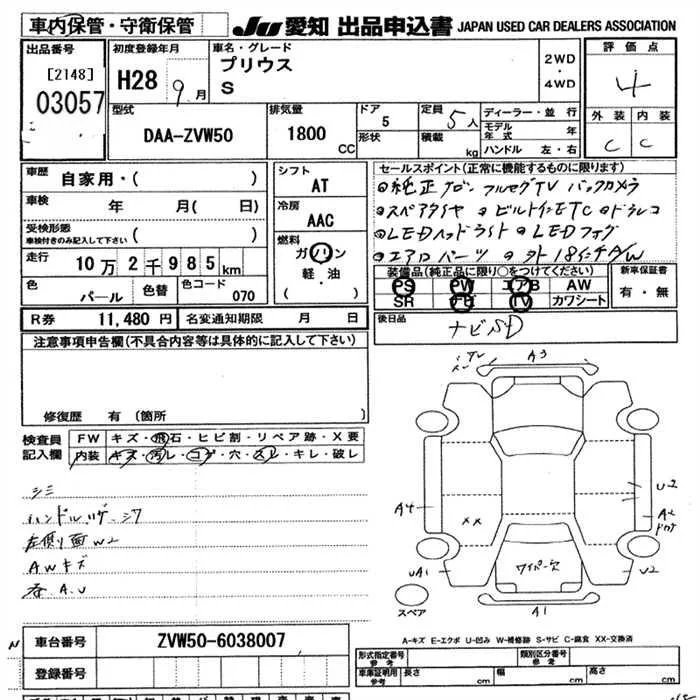 車内保管・守衛保管
JU 愛知 出品申込書 JAPAN USED CAR DEALERS ASSOCIATION
出品番号
[2148]
03057
初度登録年月
H28 9月
車名・グレード
プリウス
S
2WD
・
4WD
評価点
4
外装 内装
C C
型式
DAA-ZVW50
排気量
1800 CC
ドア
5
形状
定員 5人
積載 kg
ディーラー・並行
モデル年式 年
ハンドル 左・右
車歴 自家用・( )
車検 年 月( 日)
受検形態
車検付きのみ記入して下さい ( )
走行 10万2千985km
色 パール 色替 色コード 070
シフト
AT
冷房
AAC
燃料
ガソリン
軽・油
( )
セールスポイント(正常に機能するものに限ります)
◎純正 フルセグTV バックカメラ
◎スペアタイヤ ◎ビルトインETC ◎ドラレコ
◎LEDヘッドライト ◎LEDフォグ
◎エアロパーツ ◎ A/W
装備品(純正品に限り○をつけてください)
PS PW エアB AW
SR ナビ TV カワシート
新車保証書
有・無
R券 11,480円 名変通知期限 月 日
後日品
ナビSD
注意事項申告欄(不具合内容等は具体的に記入して下さい)
修復歴 有 (箇所 )
検査員
記入欄
FW キズ・飛石・ヒビ割・リペア跡・X要
内装 キズ・汚レ・コゲ・穴・スレ・キレ・破レ
シミ
ハンドル
左側面 W2
AWキズ
A.U
A3
A4
XX
U2
A2
UA1
U2
ワイパー欠
A1
スペア
A-キズ E-エクボ U-凹み W-補修跡 S-サビ C-腐食 XX-交換済
車台番号 ZVW50-6038007
登録番号
形式指定番号
参考
類別区分番号
参考
車庫証明用
参考
長さ cm 幅 cm 高さ cm